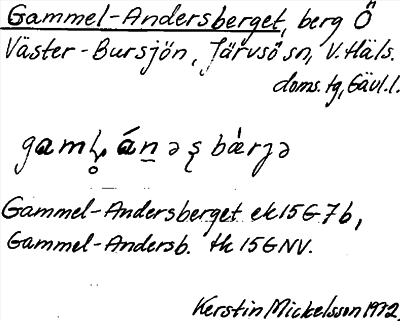 Gammel-Andersberget, berg Ö
Väster-Bursjön, Järvsö sn, V. Häls.
doms. tg, Gävl. l.
Gammel-Andersberget ek 15G7b,
Gammel-Andersb. tk 15GNV.
Kerstin Mickelsson 1972.